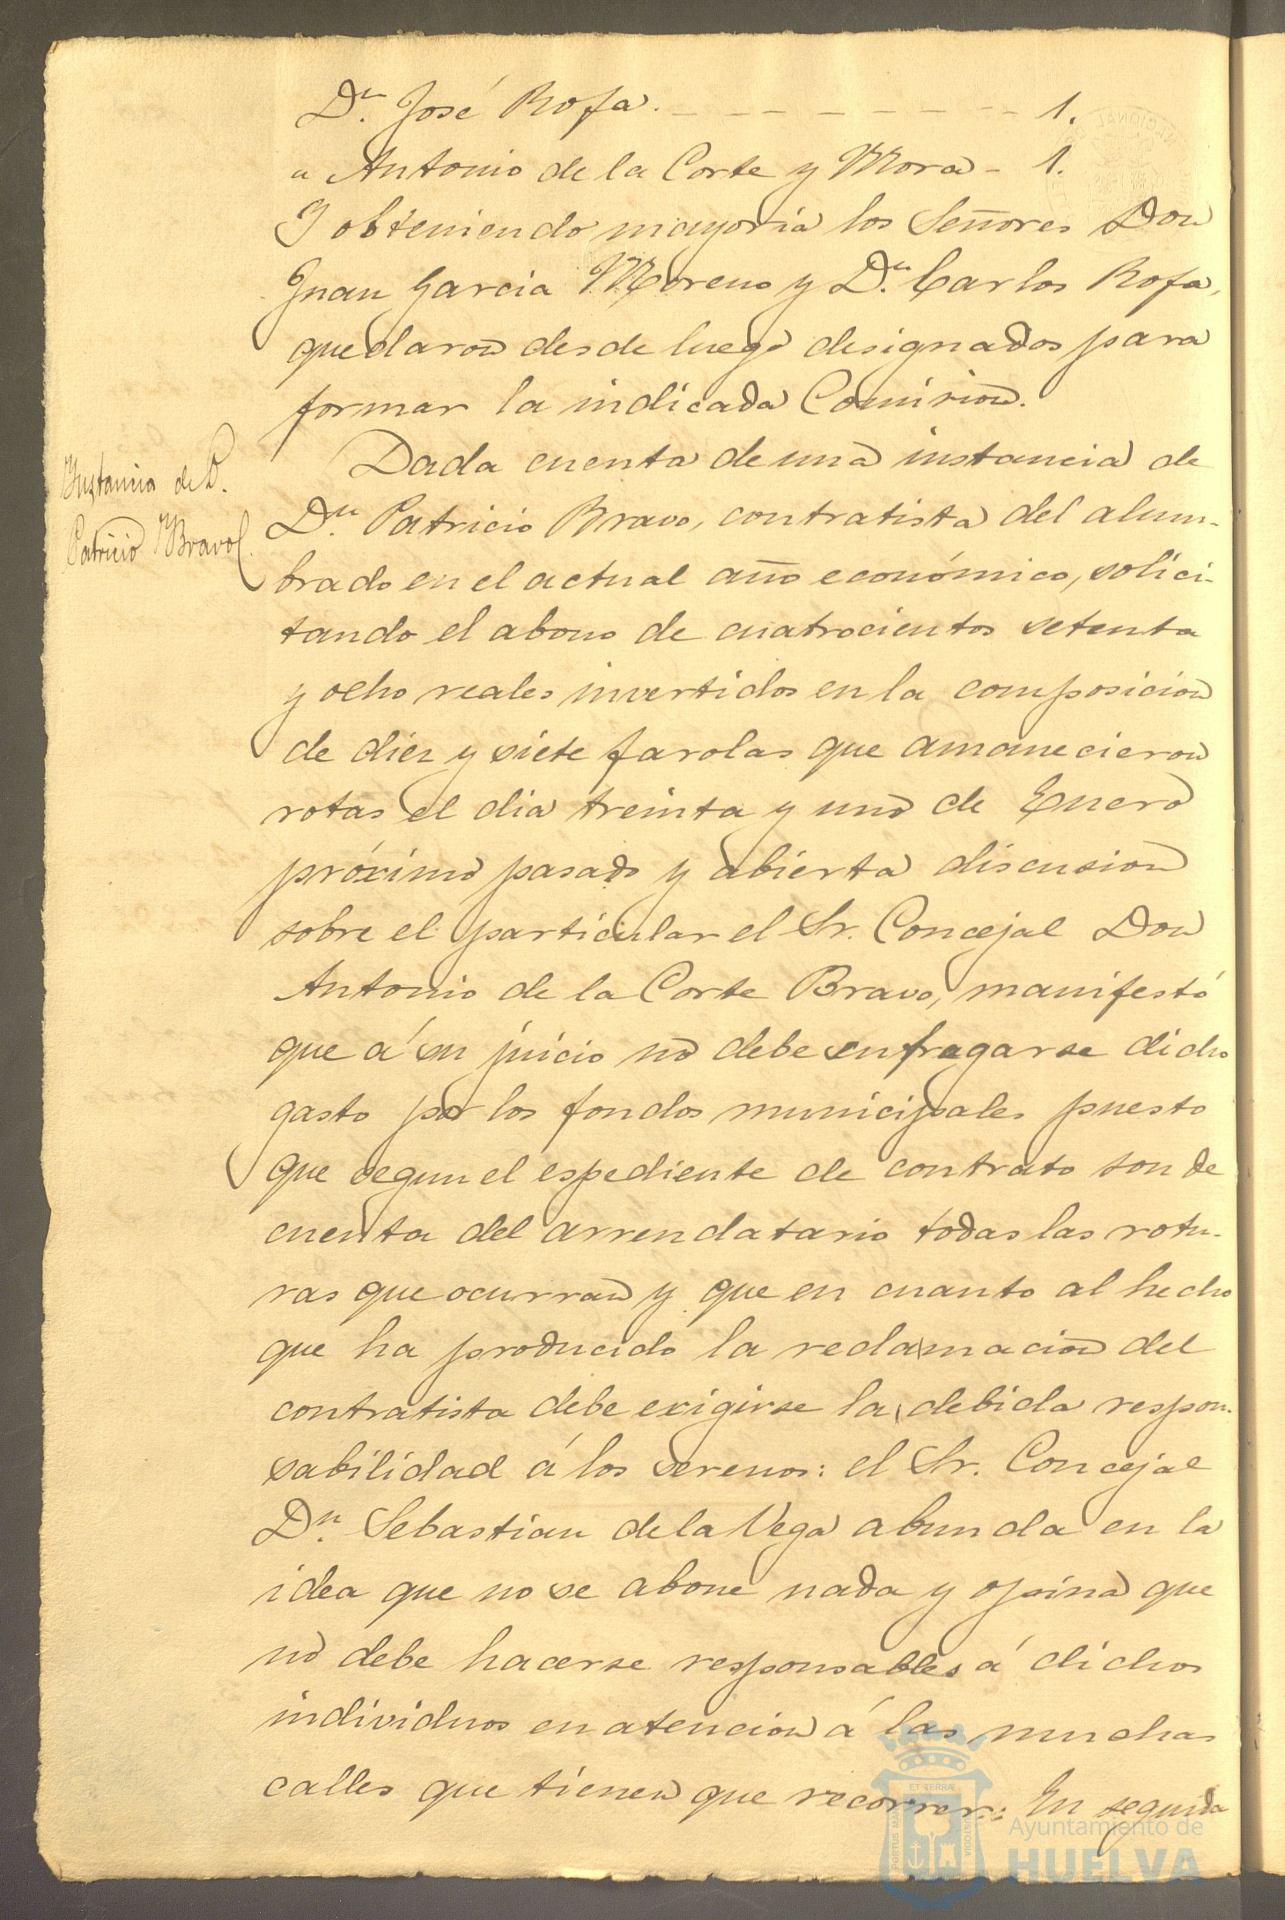 Dn. José Rofa. - - - - - - - - 1.
" Antonio de la Corte y Mora - 1.
Y obteniendo mayoria los Señores Don
Juan Garcia Moreno y Dn. Carlos Rofa,
quedaron desde luego designados para
formar la indicada Comision.
Instancia de D.
Patricio Bravo
Dada cuenta de una instancia de
Dn. Patricio Bravo, contratista del alum-
brado en el actual año económico, solici-
tando el abono de cuatrocientos setenta
y ocho reales invertidos en la composicion
de diez y siete farolas que amanecieron
rotas el dia treinta y uno de Enero
próximo pasado y abierta discusion
sobre el particular el Sr. Concejal Don
Antonio de la Corte Bravo, manifestó
que á su juicio no debe sufragarse dicho
gasto por los fondos municipales puesto
que segun el espediente de contrato son de
cuenta del arrendatario todas las rotu-
ras que ocurran y que en cuanto al hecho
que ha producido la reclamacion del
contratista debe exigirse la debida respon-
sabilidad á los serenos: el Sr. Concejal
Dn. Sebastian de la Vega abunda en la
idea que no se abone nada y opina que
no debe hacerse responsables á dichos
individuos en atencion á las muchas
calles que tienen que recorrer: En seguida
Ayuntamiento de
HUELVA